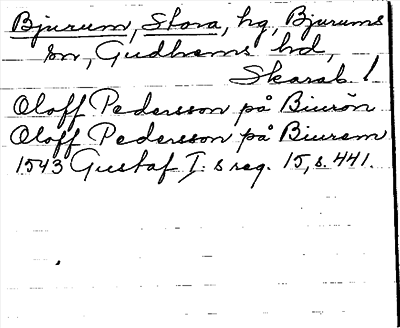 Bjurum, Stora, hg, Bjurums
sn, Gudhems hd,
Skarab. l
Oloff Pedersson på Biurön
Oloff Pedersson på Biurem
1543 Gustaf I:s reg. 15, s. 441.